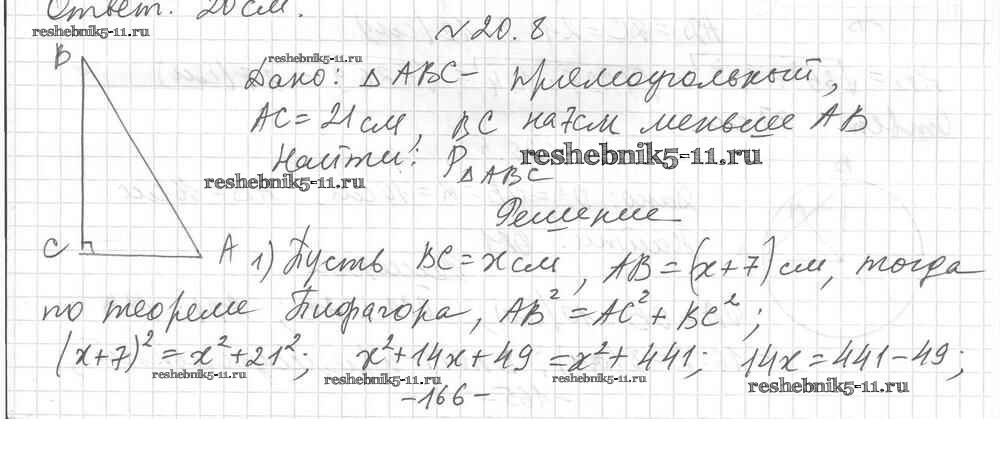 Ответ. 20 см.
reshebnik5-11.ru
№ 20. 8
B
reshebnik5-11.ru
Дано: △ ABC - прямоугольный,
AC = 21 см, BC на 7 см меньше AB
Найти: P△ABC
reshebnik5-11.ru
reshebnik5-11.ru
Решение
C A
1) Пусть BC = x см, AB = (x+7) см, тогда
по теореме Пифагора, AB² = AC² + BC²;
(x+7)² = x² + 21²; x² + 14x + 49 = x² + 441; 14x = 441 - 49;
reshebnik5-11.ru reshebnik5-11.ru reshebnik5-11.ru reshebnik5-11.ru
-166-